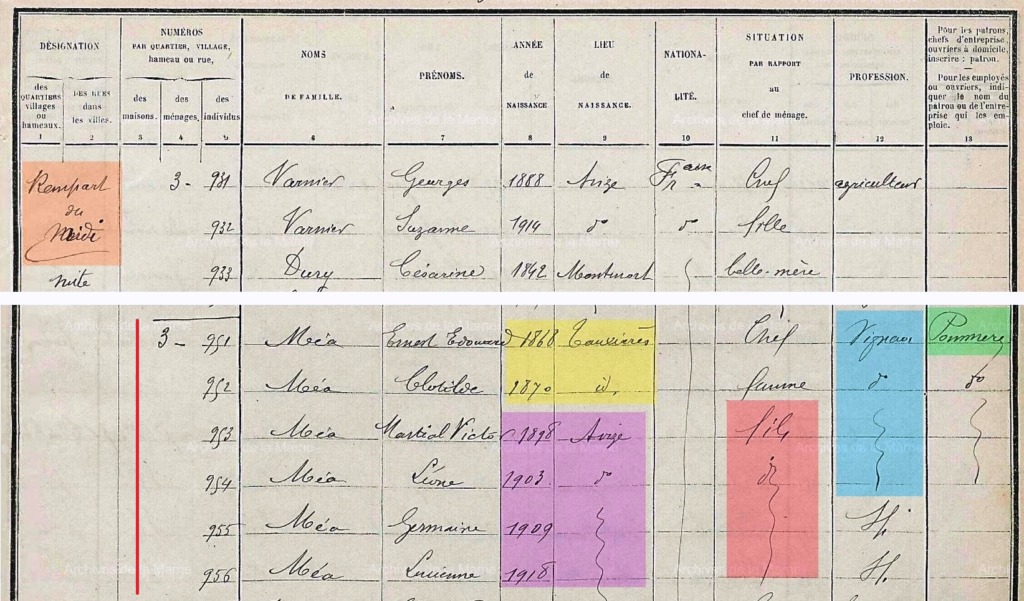 DÉSIGNATION
NUMÉROS
PAR QUARTIER, VILLAGE,
hameau ou rue,
NOMS
DE FAMILLE.
PRÉNOMS.
ANNÉE
de
NAISSANCE
LIEU
de
NAISSANCE.
NATIONA-
LITÉ.
SITUATION
PAR RAPPORT
au
chef de ménage.
PROFESSION.
Pour les patrons,
chefs d'entreprise,
ouvriers à domicile,
inscrire : patron.
Pour les employés
ou ouvriers, indi-
quer le nom du
patron ou de l'entre-
prise qui les em-
ploie.
des
QUARTIERS
villages
ou
hameaux.
DES RUES
dans
les villes.
des
maisons.
des
ménages.
des
individus
1 2 3 4 5 6 7 8 9 10 11 12 13
Rempart
du
Midi
suite
3 - 931 Varnier Georges 1888 Avize Fr aise Chef agriculteur
932 Varnier Suzanne 1914 do do fille
933 Dury Césarine 1842 Montmort belle-mère
3 - 951 Méa Ernest Edouard 1868 Tauxières Chef Vigneron Pommery
952 Méa Clotilde 1870 id. femme do do
953 Méa Martial Victor 1898 Avize fils
954 Méa Léone 1903 do d
955 Méa Germaine 1909
956 Méa Lucienne 1918
Archives de la Marne